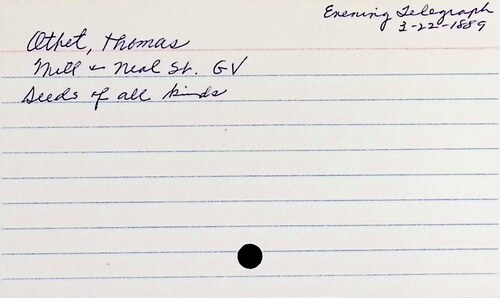 Evening Telegraph
3-22-1889
Othet, Thomas
Mill & Neal St. GV
Seeds of all kinds